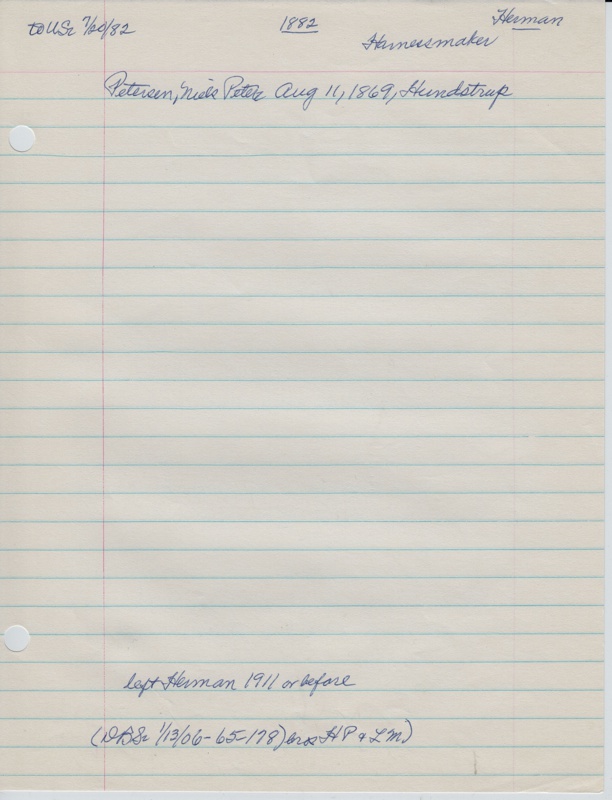 to US: 7/20/82 1882 Herman
Harnessmaker
Petersen, Niels Peter Aug 11, 1869, Hundstrup
left Herman 1911 or before
(DBS: 1/13/06-65-178) bros HP & LM)